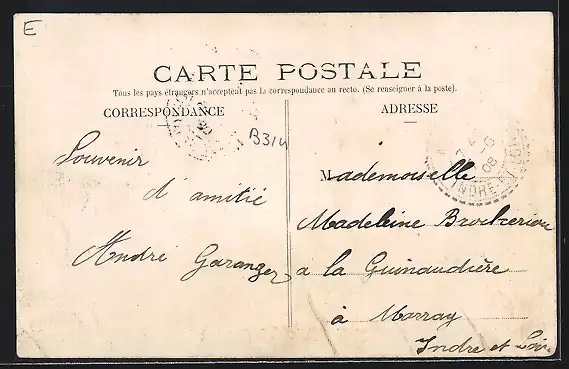 E
CARTE POSTALE
Tous les pays étrangers n'acceptent pas la correspondance au recto. (Se renseigner à la poste).
CORRESPONDANCE
ADRESSE
B314
Souvenir
d'amitié
André Garanger
Mademoiselle
Madeleine
a la Guinaudière
à Marray
Indre et Loire
08
INDRE